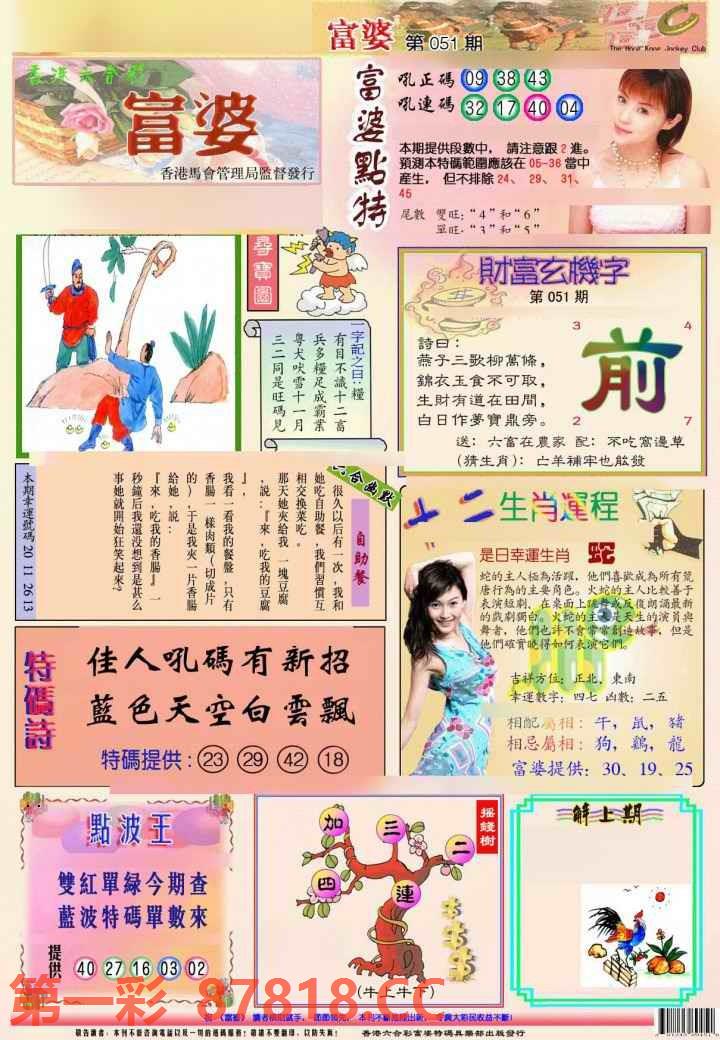 富婆 第051期
The Hong Kong Jockey Club
香港六合彩
富婆
香港馬會管理局監督發行
富婆點特
吼正碼 09 38 43
吼連碼 32 17 40 04
本期提供段數中， 請注意跟2進。
預測本特碼範圍應該在05-36當中
產生， 但不排除24、 29、 31、
45
尾數 雙旺:“4”和“6”
單旺:“3”和“5”
尋寶圖
一字記之曰:糧
有目不識十二畜
兵多糧足成霸業
粵犬吠雪十一月
三二同是旺碼見
財富玄機字
第051期
詩曰:
燕子三歌柳萬條，
錦衣玉食不可取，
生財有道在田間，
白日作夢寶鼎旁。
3 4
前
2 7
送: 六畜在農家 配: 不吃窩邊草
(猜生肖): 亡羊補牢也能發
六合幽默
自助餐
很久以后有一次，我和
她吃自助餐，我們習慣互
相交換菜吃。
那天她夾給我一塊豆腐
，說:『來，吃我的豆腐
』，
我看一看我的餐盤，只有
香腸一樣肉類(切成片
的)，于是我夾一片香腸
給她，說:
『來，吃我的香腸』一
秒鐘后我還没想到是甚么
事她就開始狂笑起來?
本期幸運號碼 20 11 26 13
十二生肖運程
是日幸運生肖 蛇
蛇的主人極為活躍， 他們喜歡成為所有荒
唐行為的主要角色。火蛇的主人比較善于
表演短劇，在桌面上跳舞或反復朗誦最新
的戲劇獨白。火蛇的主人是天生的演員與
舞者，他們也許不會常常創造故事，但是
他們確實曉得如何表演它們。
吉祥方位: 正北，東南
幸運數字: 四七 凶數: 二五
相配屬相: 牛，鼠，豬
相忌屬相: 狗，鷄，龍
富婆提供: 30、19、25
特碼詩
佳人吼碼有新招
藍色天空白雲飄
特碼提供: 23 29 42 18
點波王
雙紅單緑今期查
藍波特碼單數來
提供 40 27 16 03 02
搖錢樹
加 三 二
四 連
(牛上牛下)
解上期
第一彩 87818.CC
敬告讀者: 本刊不斷咨詢電話以及一切的透碼服務! 敬請不要翻印，以防失真!
香港六合彩富婆特碼俱樂部出版發行